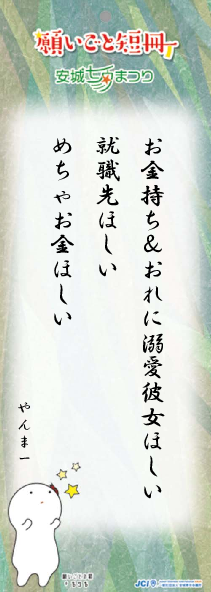 願いごと短冊
安城七夕まつり
お金持ち&おれに溺愛彼女ほしい
就職先ほしい
めちゃお金ほしい
やんまー
JCI